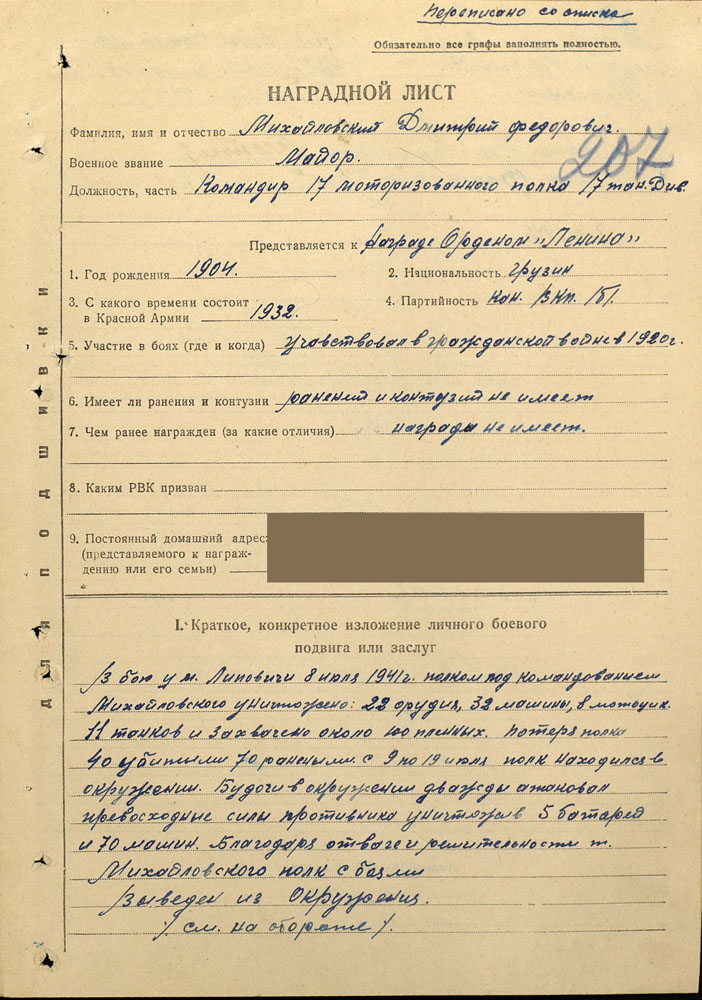 Переписано со списка
Обязательно все графы заполнять полностью.
НАГРАДНОЙ ЛИСТ
207
Фамилия, имя и отчество Михайловский Дмитрий Федорович.
Военное звание Майор.
Должность, часть Командир 17 моторизованного полка 17 тан. Див.
Представляется к награде Орденом „Ленина"
1. Год рождения 1904.
2. Национальность грузин
3. С какого времени состоит
в Красной Армии 1932.
4. Партийность Кан. ВКП /б/.
5. Участие в боях (где и когда) учавствовал в гражданской войне в 1920 г.
6. Имеет ли ранения и контузии ранений и контузий не имеет
7. Чем ранее награжден (за какие отличия) награды не имеет.
8. Каким РВК призван
9. Постоянный домашний адрес:
(представляемого к награж-
дению или его семьи)
I. Краткое, конкретное изложение личного боевого
подвига или заслуг
В бою у м. Липовичи 8 июля 1941 г. полком под командованием
Михайловского уничтожено: 22 орудия, 32 машины, 8 мотоцик.
11 танков и захвачено около 100 пленных. Потеря полка
40 убитыми 70 ранеными. С 9 по 19 июля полк находился в
окружении. Будучи в окружении дважды атаковал
превосходные силы противника уничтожив 5 батарей
и 70 машин. Благодаря отваге и решительности т.
Михайловского полк с боями
выведен из окружения.
/ см. на обороте /.
Для подшивки